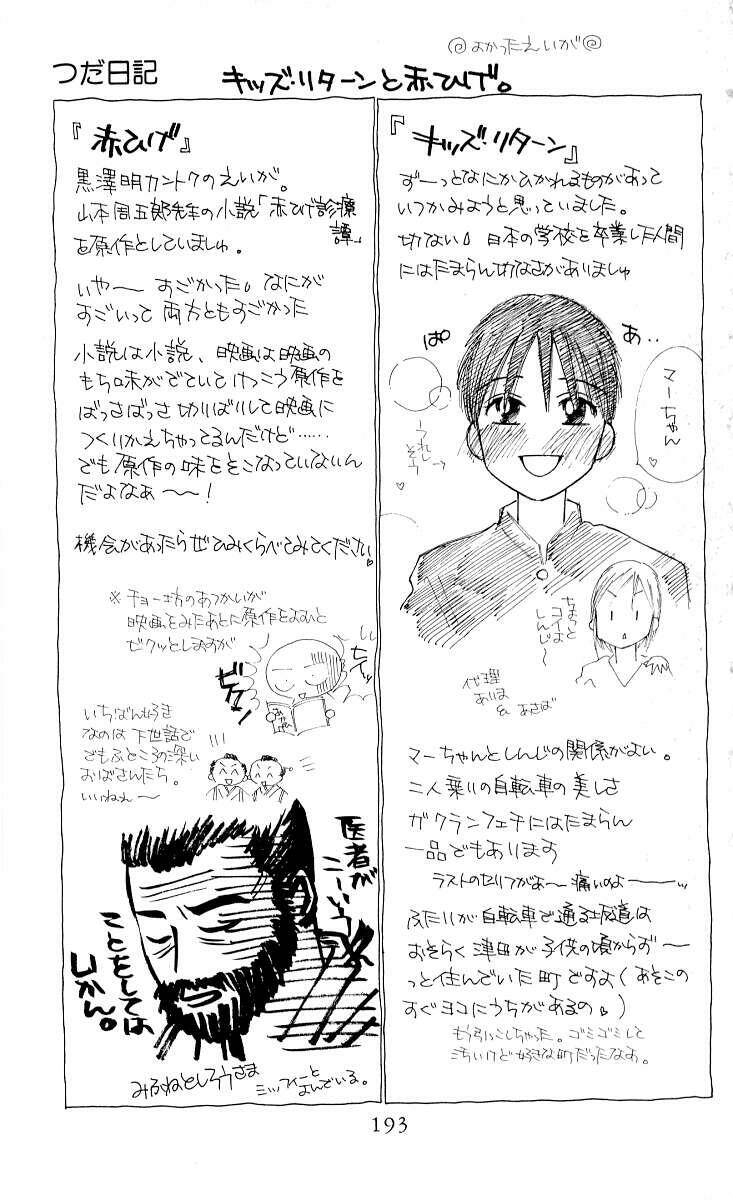 ◎よかったえいが◎
つだ日記
キッズ・リターンと赤ひげ。
『キッズ・リターン』
ずーっとなにかひかれるものがあって
いつかみようと思っていました。
切ない。日本の学校を卒業した人間
にはたまらん切なさがありましゅ
ぱ
あ..
マーちゃん
うれしそう
ちょっと
コイよ
しんじ〜
代理
ありま
& あさば
マーちゃんとしんじの関係がよい。
二人乗りの自転車の美しさ
ガクランフェチにはたまらん
一品でもあります
ラストのセリフがよ〜痛いのよーーー
ふたりが自転車で通る坂道は
おそらく津田が子供の頃からず〜
っと住んでいた町ですよ(あそこの
すぐヨコにうちがあるの。)
もう引っこしちゃった。ゴミゴミして
汚いけど好きな町だったなあ。
『赤ひげ』
黒澤明カントクのえいが。
山本周五郎先生の小説「赤ひげ診療
譚」
を原作としていましゅ。
いや〜 すごかった。なにが
すごいって 両方ともすごかった
小説は小説、映画は映画の
もち味がでていてけっこう原作を
ばっさばっさ切りばりして映画に
つくりかえちゃってるんだけど……
でも原作の味をそこなっていないん
だよなぁ〜〜!
機会があったらぜひみくらべてみてください
※チョー坊のあつかいが
映画をみたあとに原作をよむと
ビクッとしますが
ビクッ!
いちばんすき
なのは下世話で
でもふところの深い
おばさんたち。
いいねぇ〜
医者が
こーいう
ことをしては
いかん。
みふねとしろうさま
ミッフィーと
よんでいる。
193